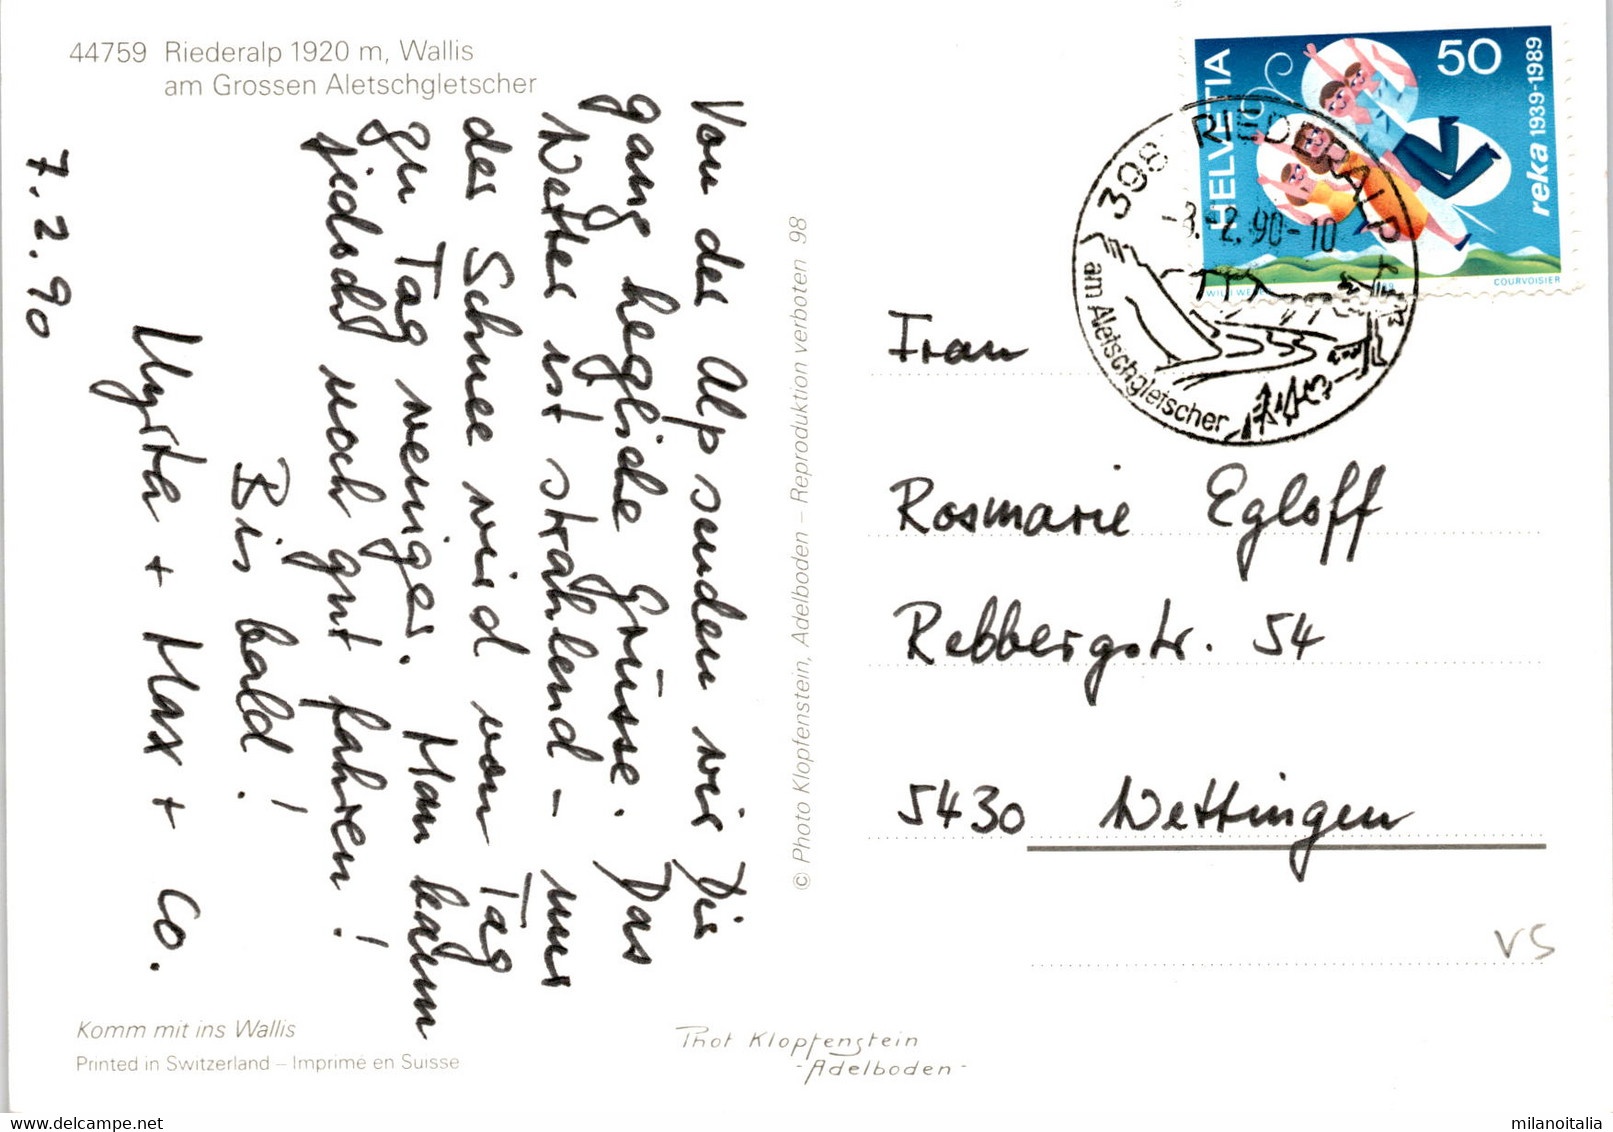 44759 Riederalp 1920 m, Wallis
am Grossen Aletschgletscher
7. 2. 90
Von der Alp senden wir Dir
ganz herzliche Grüsse. Das
Wetter ist strahlend – nur
der Schnee wird von Tag
zu Tag weniger. Man kann
jedoch noch gut fahren!
Bis bald!
Myrta + Max + Co.
© Photo Klopfenstein, Adelboden – Reproduktion verboten 98
HELVETIA
50
reka 1939-1989
COURVOISIER
RIEDERALP
-2.90-10
am Aletschgletscher
Frau
Rosmarie Egloff
Rebbergstr. 54
5430 Wettingen
VS
Komm mit ins Wallis
Printed in Switzerland – Imprimé en Suisse
Phot Klopfenstein
- Adelboden -
www.delcampe.net
milanoitalia